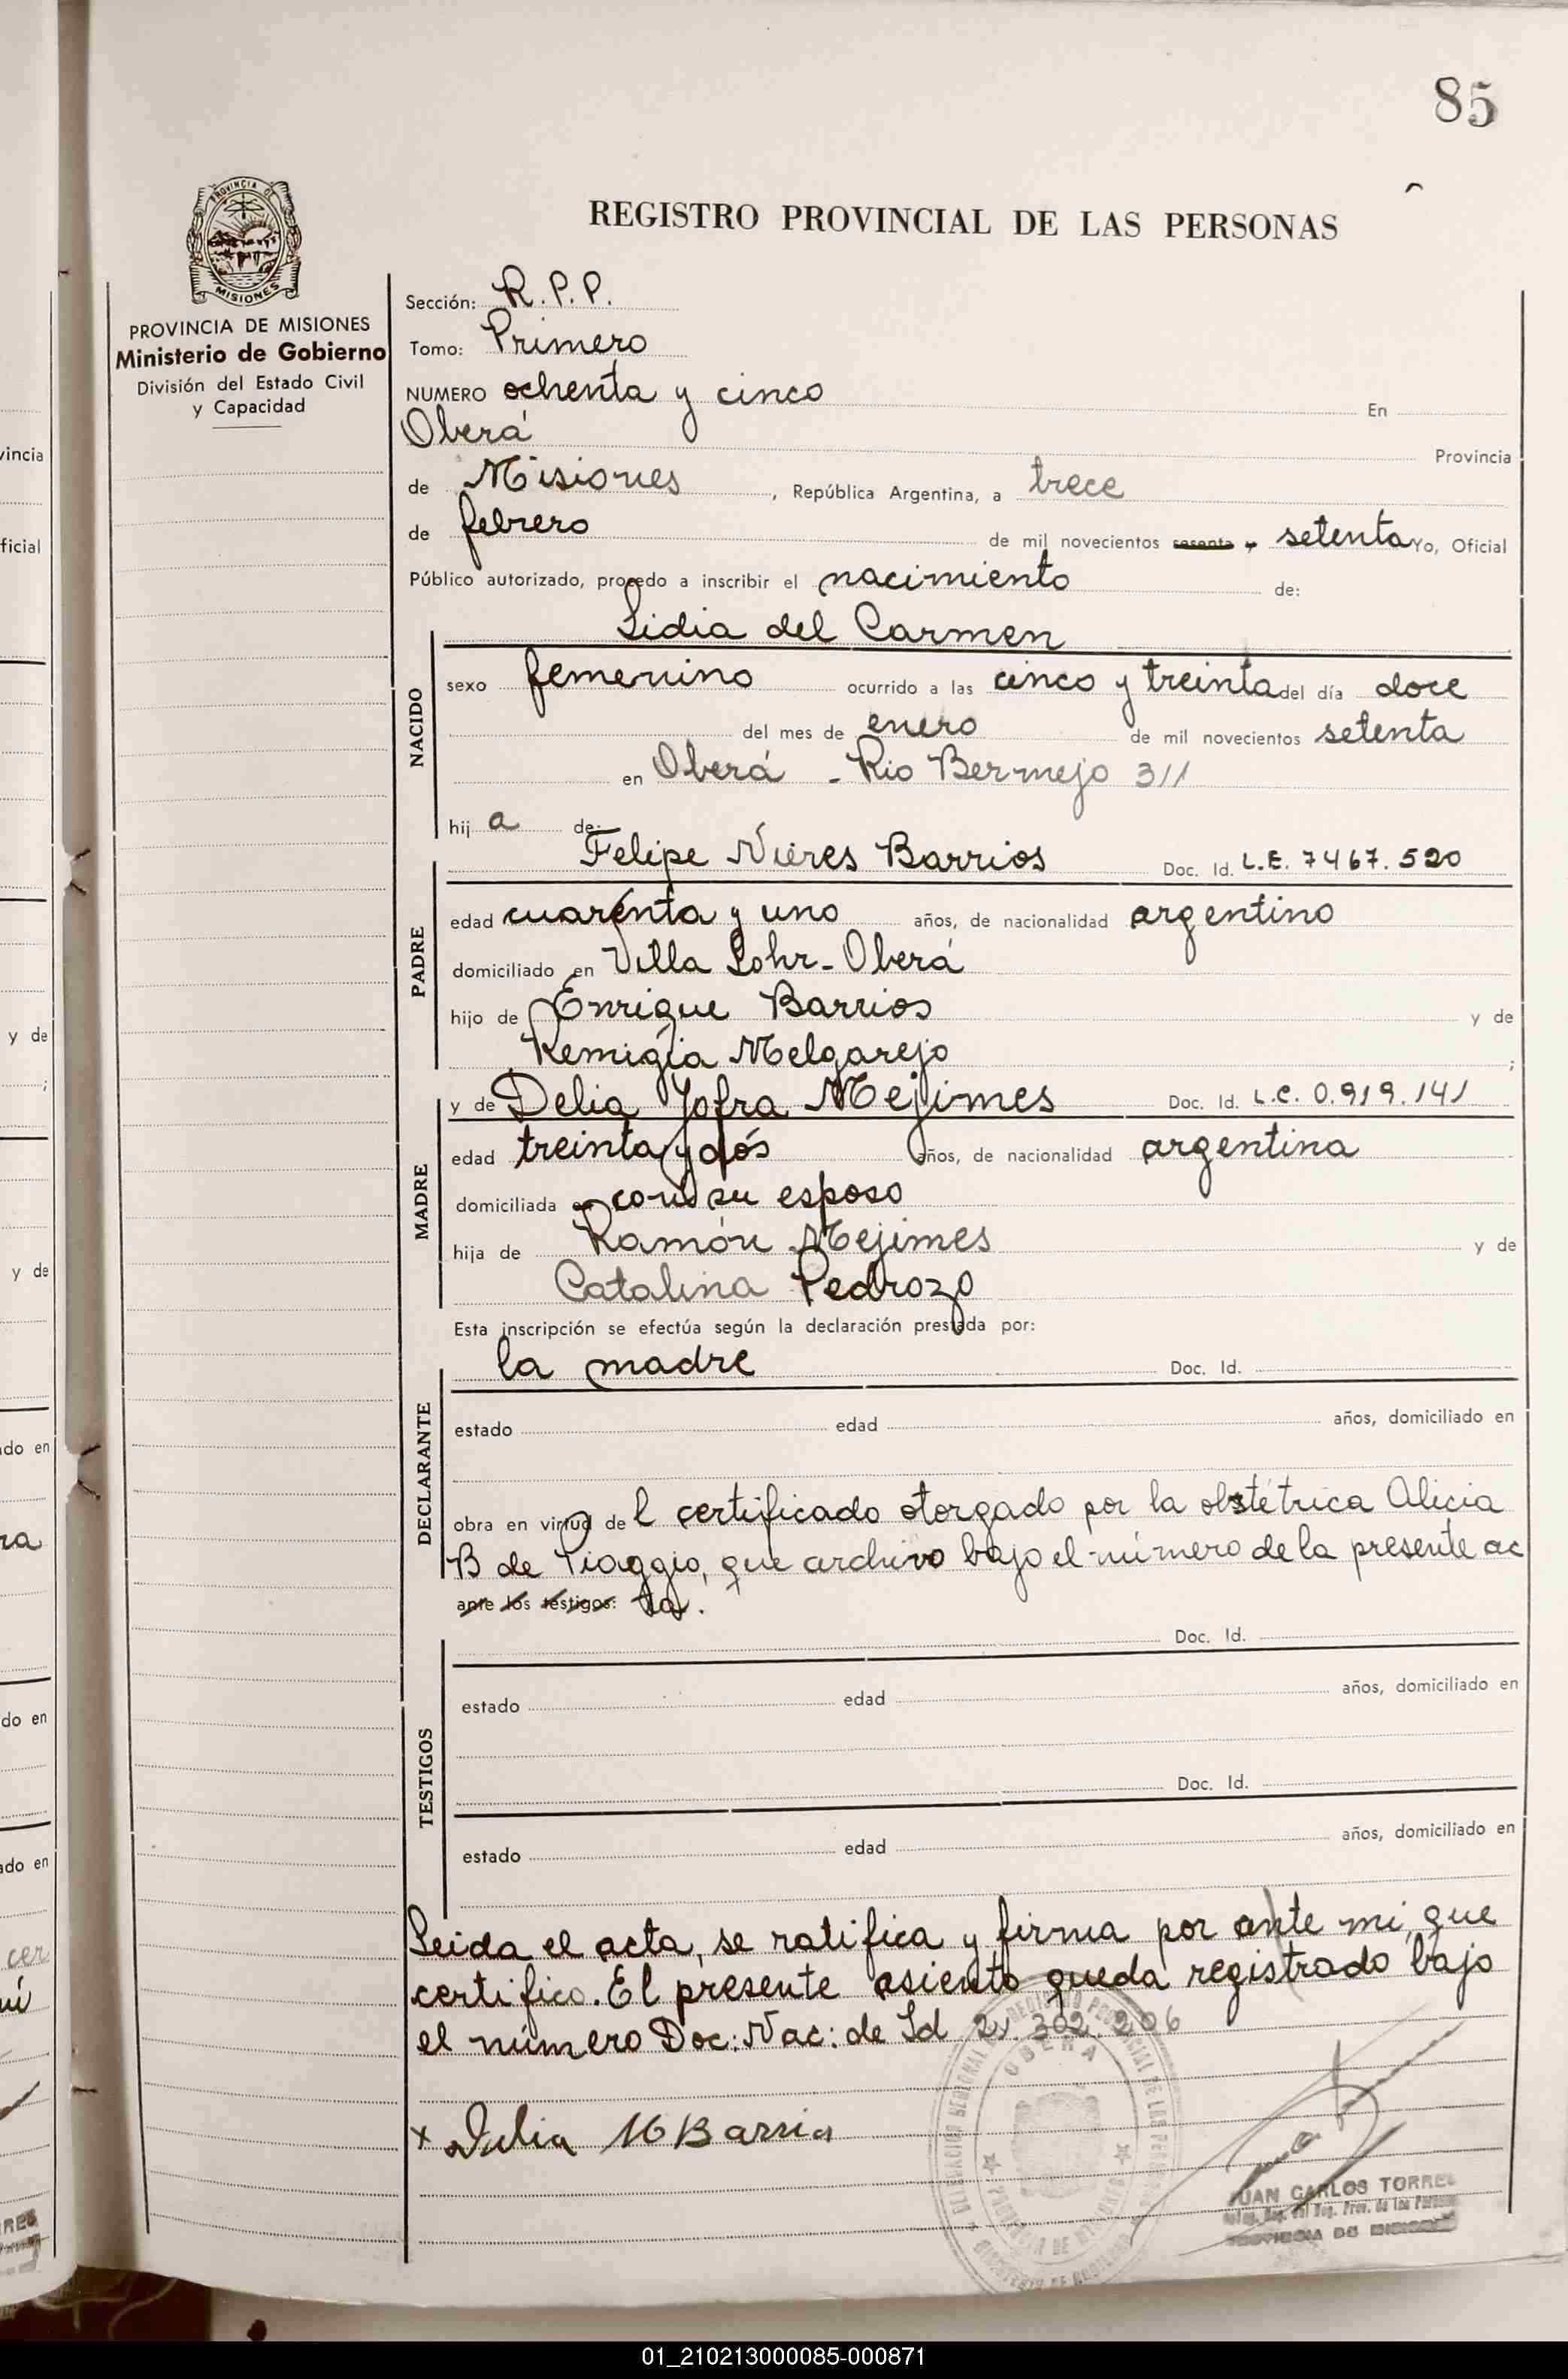 85
REGISTRO PROVINCIAL DE LAS PERSONAS
PROVINCIA DE
MISIONES
PROVINCIA DE MISIONES
Ministerio de Gobierno
División del Estado Civil
y Capacidad
Sección: R.P.P.
Tomo: Primero
NUMERO ochenta y cinco En
Oberá Provincia
de Misiones, República Argentina, a trece
de febrero de mil novecientos sesenta y setenta Yo, Oficial
Público autorizado, procedo a inscribir el nacimiento de:
Lidia del Carmen
NACIDO
sexo femenino ocurrido a las cinco y treinta del día doce
del mes de enero de mil novecientos setenta
en Oberá - Rio Bermejo 311
hij a de:
Felipe Nieres Barrios Doc. Id. L.E. 7467.520
PADRE
edad cuarenta y uno años, de nacionalidad argentino
domiciliado en Villa Lohr - Oberá
hijo de Enrique Barrios y de
Remigia Melgarejo ;
y de Delia Jofra Mejimes Doc. Id. L.C. 0.919.141
MADRE
edad treinta y dós años, de nacionalidad argentina
domiciliada con su esposo
hija de Ramón Mejimes y de
Catalina Pedrozo
Esta inscripción se efectúa según la declaración prestada por:
la madre Doc. Id.
DECLARANTE
estado edad años, domiciliado en
obra en virtud de l certificado otorgado por la obstétrica Alicia
B de Piaggio, que archivo bajo el número de la presente ac
ante los testigos: ta.
Doc. Id.
TESTIGOS
estado edad años, domiciliado en
Doc. Id.
estado edad años, domiciliado en
Leida el acta, se ratifica y firma por ante mi, que
certifico. El presente asiento queda registrado bajo
el número Doc: Nac: de Id 21.302.206
x Delia M B arrios
OBERA
JUAN CARLOS TORRES
PROVINCIA DE MISIONES
01_210213000085-000871